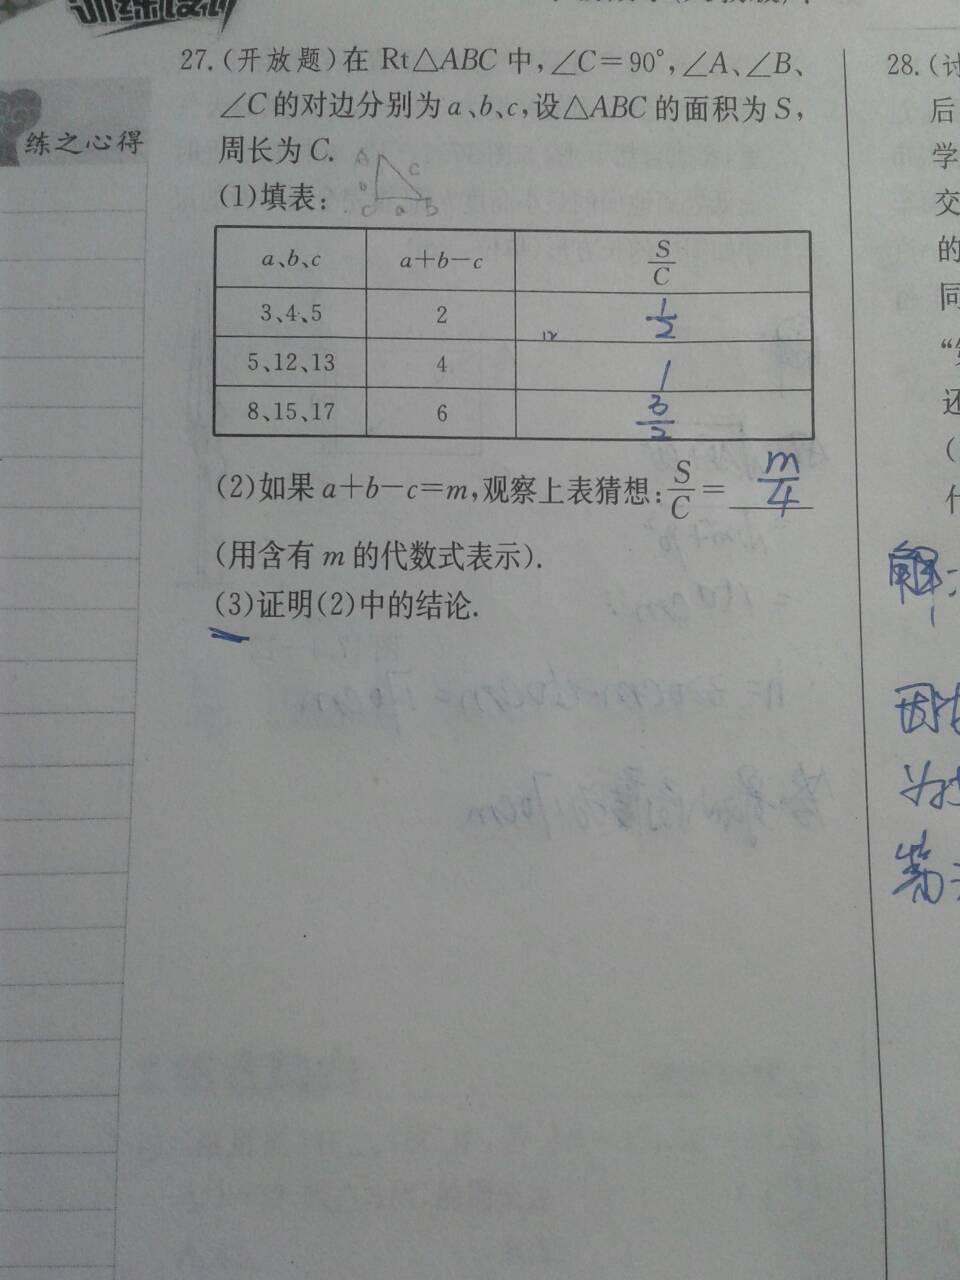 训练设计
练之心得
27.(开放题)在 Rt△ABC 中,∠C=90°,∠A、∠B、
∠C的对边分别为a、b、c,设△ABC的面积为S,
周长为C.
A
b
c
C
a
B
(1)填表:
a、b、c a+b−c S/C
3、4、5 2 1/2
12
5、12、13 4 1
8、15、17 6 3/2
(2)如果a+b−c=m,观察上表猜想:S/C= m/4
(用含有m的代数式表示).
(3)证明(2)中的结论.
28.(讨
后
学
交
的
同
还
(
解:
因
为
答: